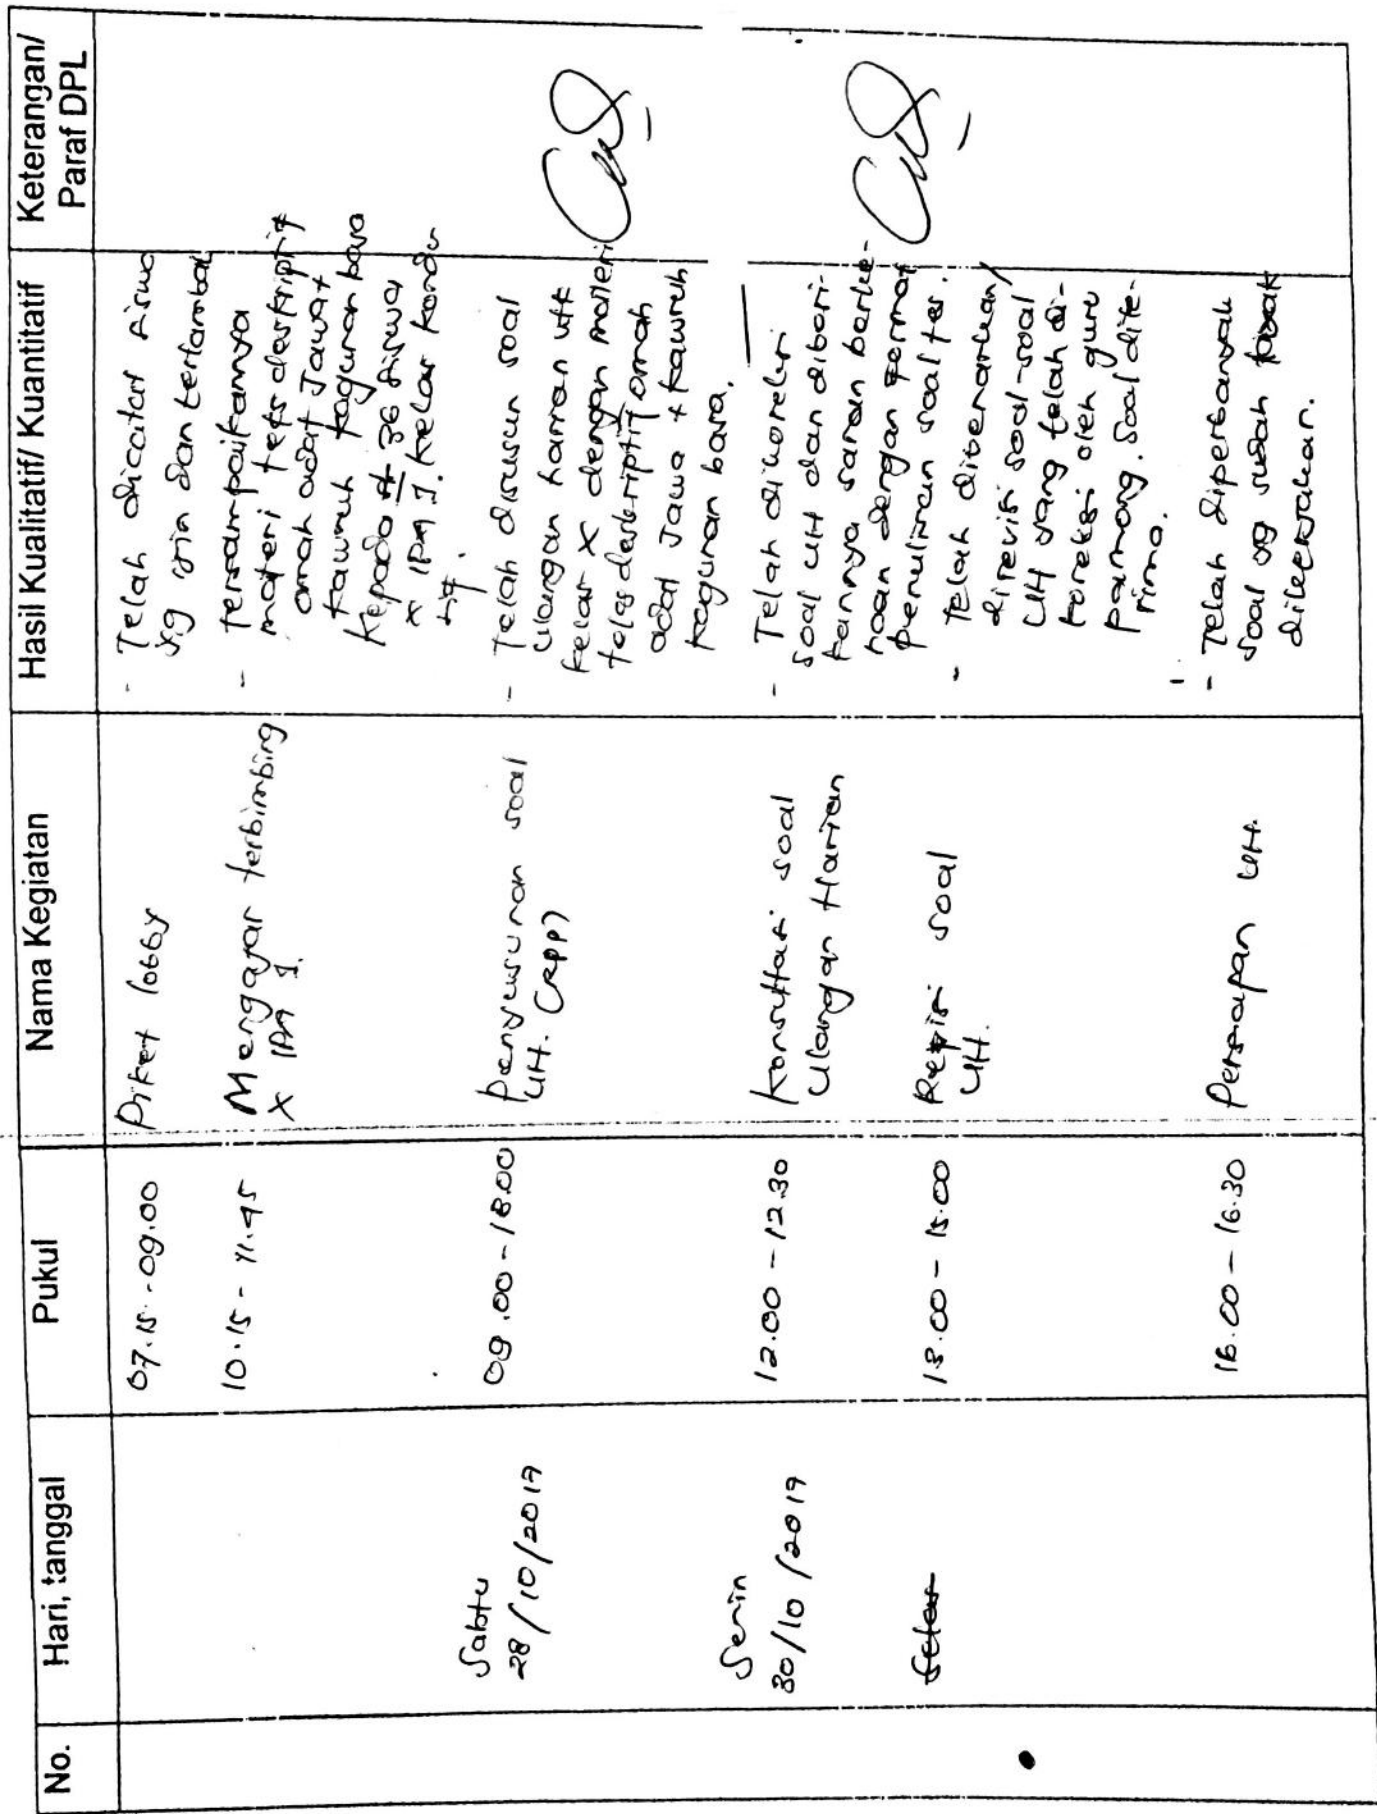 No.
Hari, tanggal
Pukul
Nama Kegiatan
Hasil Kualitatif/ Kuantitatif
Keterangan/
Paraf DPL
07.15 - 09.00
Piket lobby
- Telah dicatat siswa
yg ijin dan terlambat
10.15 - 11.45
Mengajar terbimbing
X IPA 1.
- Tersampaikannya
materi teks deskriptif
omah adat Jawa +
kawruh kagunan basa
kepada ± 36 siswa
X IPA 1. kelas
Sabtu
28/10/2017
09.00 - 18.00
Penyusunan soal
UH. (RPP)
- Telah disusun soal
ulangan harian utk
kelas X dengan materi
teks deskriptif omah
adat Jawa + kawruh
kagunan basa.
Senin
30/10/2017
12.00 - 12.30
Konsultasi soal
Ulangan Harian
- Telah dikoreksi
soal UH dan diberi-
kannya saran berke-
naan dengan format
penulisan soal tes.
13.00 - 15.00
Revisi soal
UH.
- Telah dibenarkan/
direvisi soal-soal
UH yang telah di-
koreksi oleh guru
pamong. Soal dite-
rima.
16.00 - 16.30
Persiapan UH.
- Telah diperbanyak
soal yg sudah
dikerjakan.